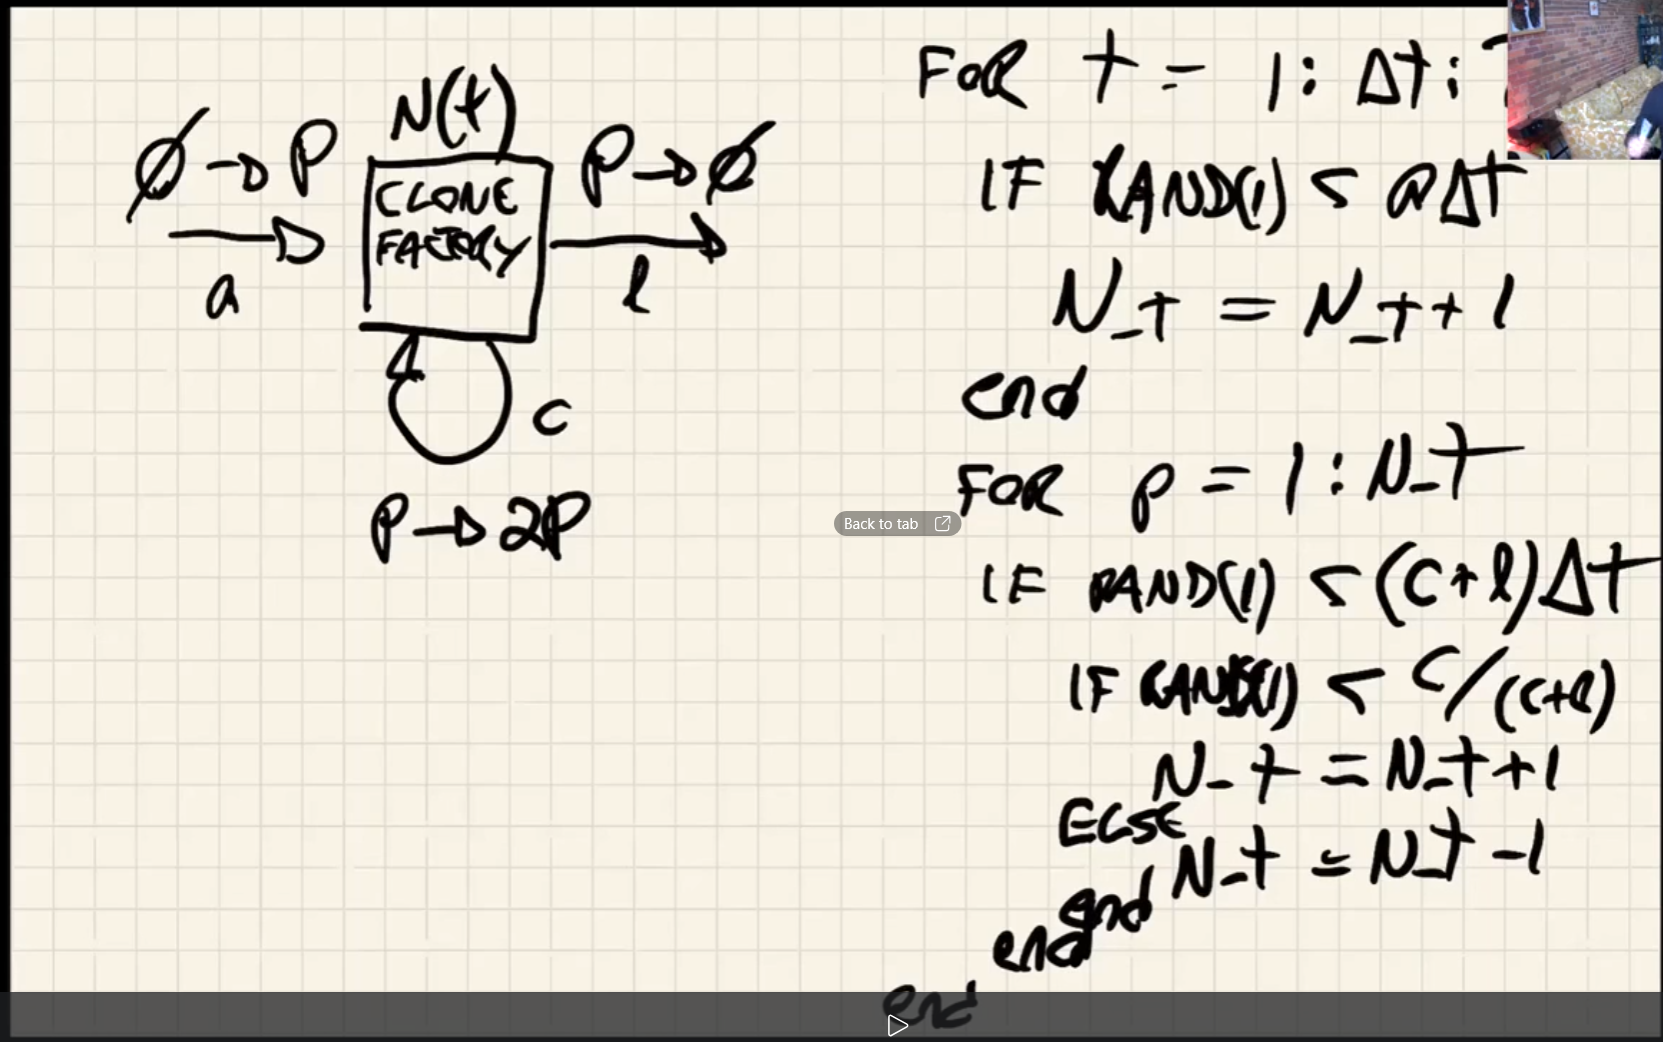 N(t)
∅ → P
CLONE
FACTORY
P → ∅
a
l
c
P → 2P
FOR t = 1 : Δt :
IF RAND(1) < aΔt
N_t = N_t + 1
end
FOR p = 1 : N_t
IF RAND(1) < (C + l)Δt
IF RAND(1) < C/(C+l)
N_t = N_t + 1
ELSE
N_t = N_t - 1
end
end
end
Back to tab